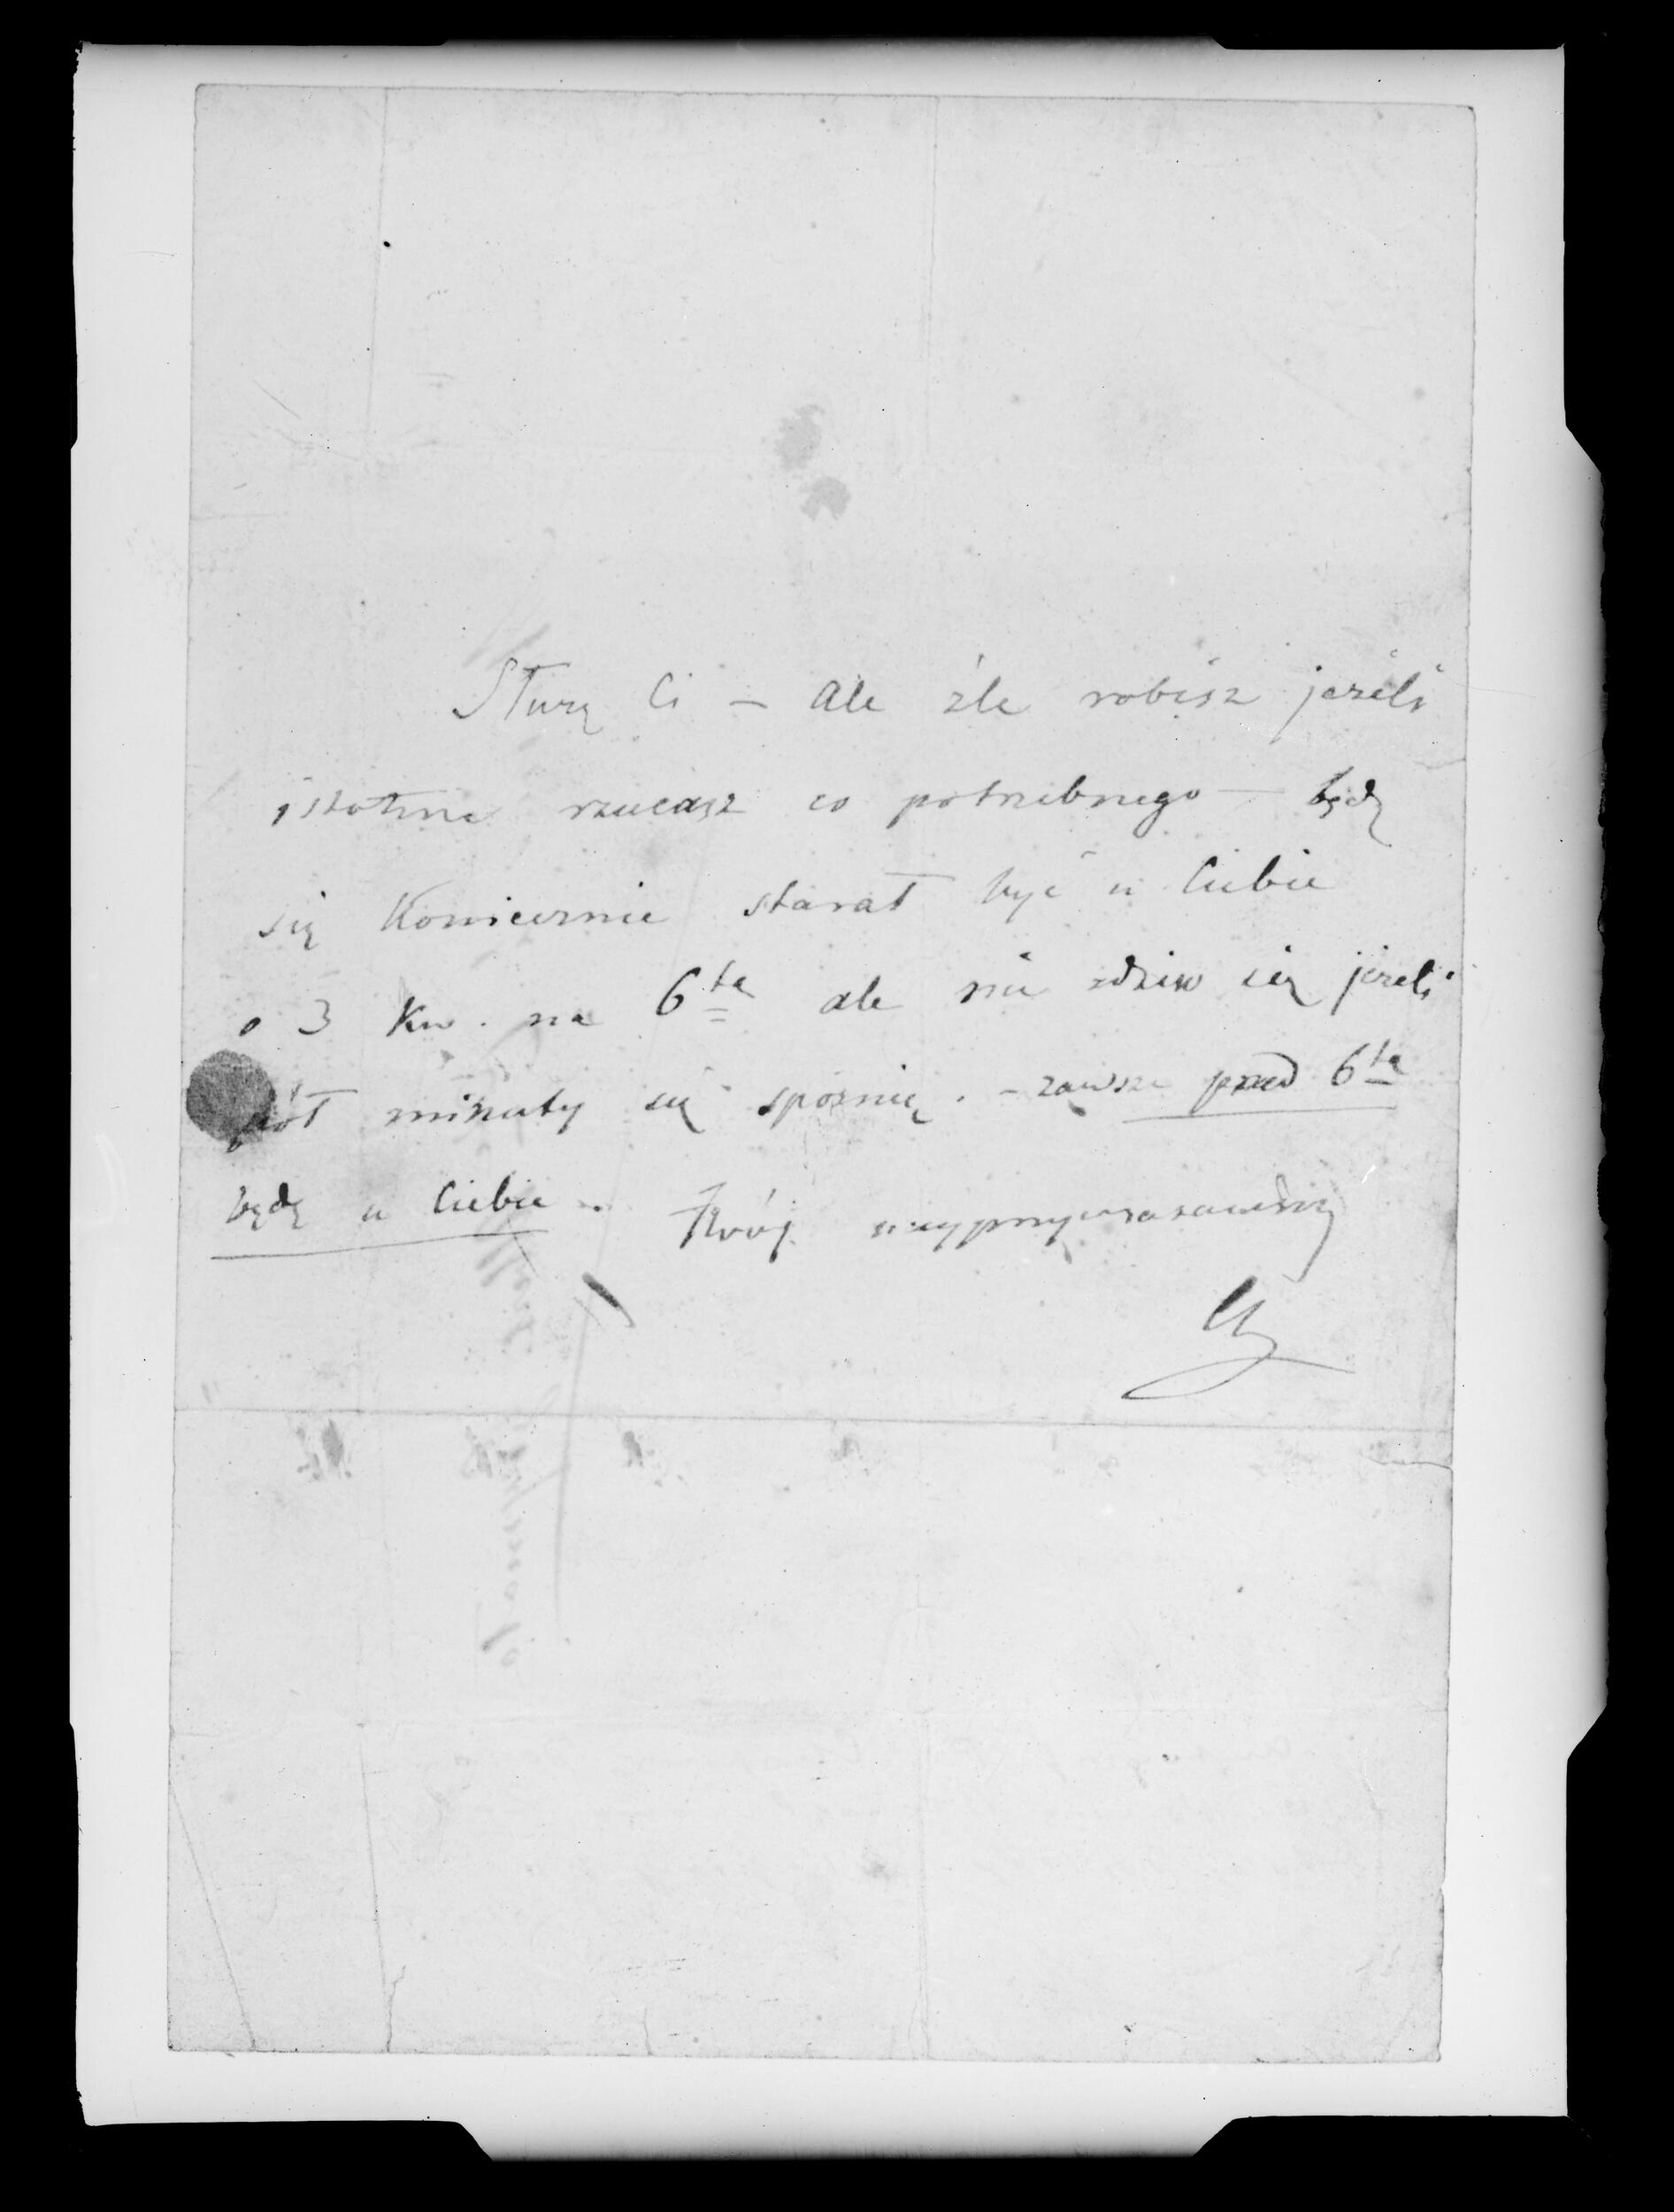 Służę Ci – Ale źle robisz jeżeli
istotnie rzucasz co potrzebnego – będę
się Koniecznie starał być u Ciebie
o 3 Kw. na 6tą ale nie zdziw się jeżeli
pół minuty się spóźnię. – zawsze przed 6tą
będę u Ciebie. Twój najprzywiązańszy